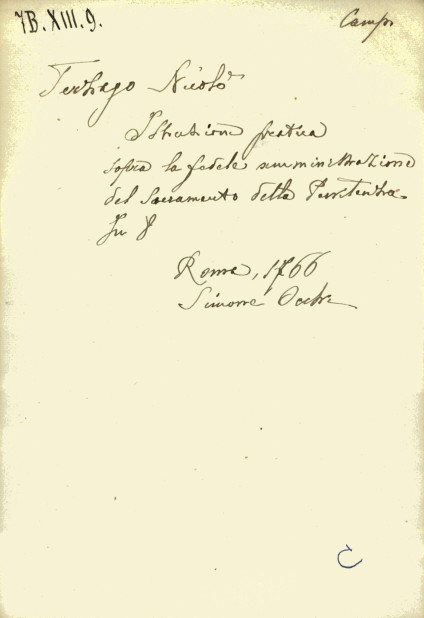 7B.XIII.9.
Camp
Terzago Nicolò
Istruzione pratica
sopra la fedele amministrazione
del Sacramento della Penitenza
In 8
Roma, 1766
Simone
C